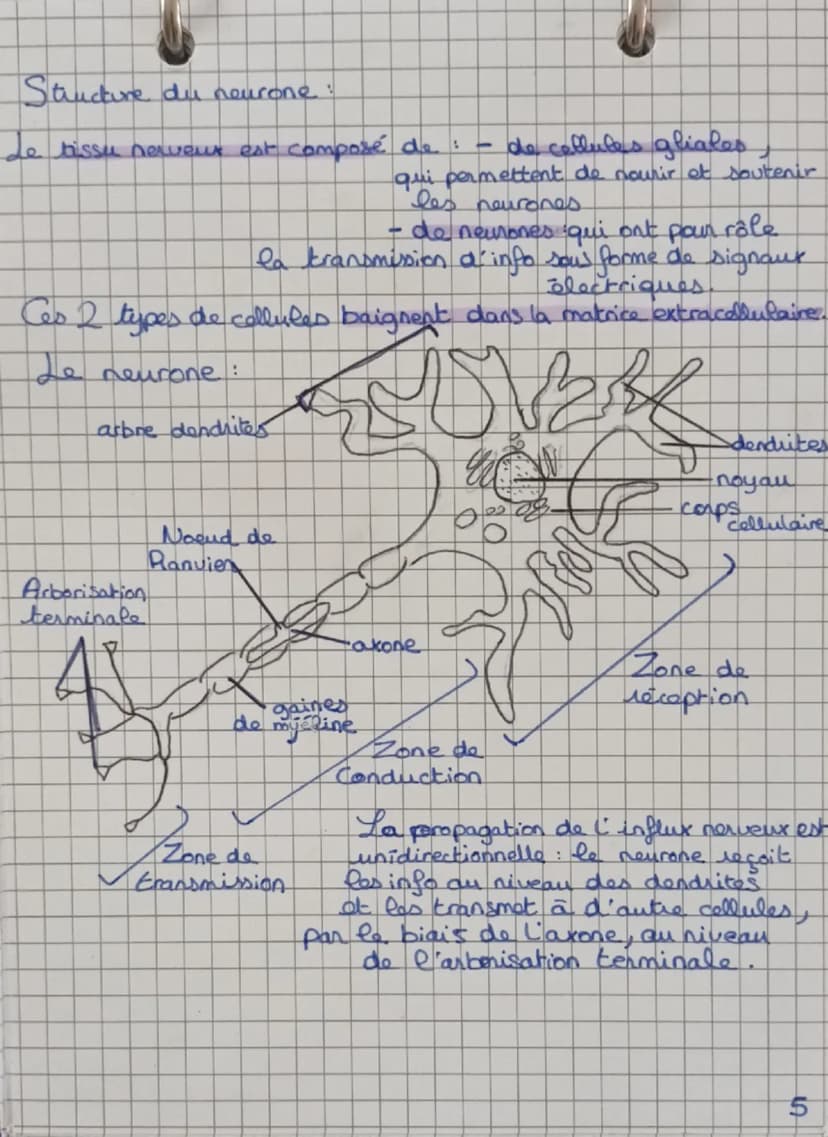 Structure du neurone :
Le tissu nerveux est composé de : - de cellules gliales,
qui permettent de nourrir et soutenir
les neurones
- de neurones qui ont pour rôle
la transmission d'info sous forme de signaux
électriques.
Ces 2 types de cellules baignent dans la matrice extracellulaire.
Le neurone :
arbre dendrites
dendrites
noyau
corps
cellulaire
Noeud de
Ranvier
Arborisation
terminale
axone
gaines
de myéline
Zone de
réception
Zone de
Conduction
Zone de
transmission
La propagation de l'influx nerveux est
unidirectionnelle : le neurone reçoit
les info au niveau des dendrites
et les transmet à d'autre cellules,
par le biais de l'axone, au niveau
de l'arborisation terminale.
5